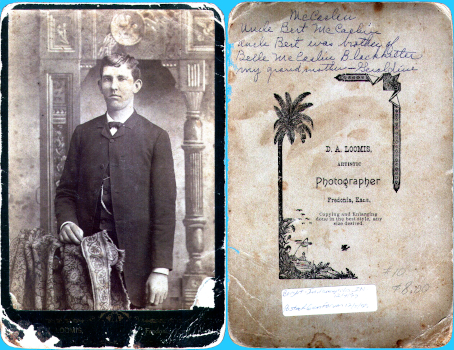 McCaslin
Uncle Bert McCaslin
Uncle Bert was brother of
Belle McCaslin Blackketter
my grandmother - Geraldine
D. A. LOOMIS,
ARTISTIC
Photographer
Fredonia, Kans.
Copying and Enlarging
done in the best style, any
size desired.
LOOMIS,